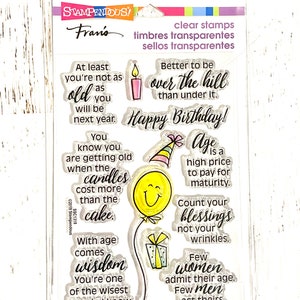 STAMPENDOUS!
Fran's
clear stamps
timbres transparentes
sellos transparentes
At least
you're not as
old as
you will
be next year.
Better to be
over the hill
than under it.
Happy Birthday!
You
know you
are getting old
when the
candles
cost more
than the
cake.
Age
is a
high price
to pay for
maturity.
Count your
blessings
not your
wrinkles.
With age
comes
wisdom
You're one
of the wisest
Few
women
admit their age.
Few men